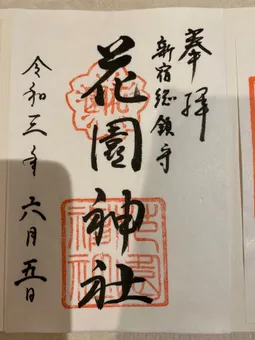 奉拝
新宿総鎮守
花園神社
令和三年 六月五日